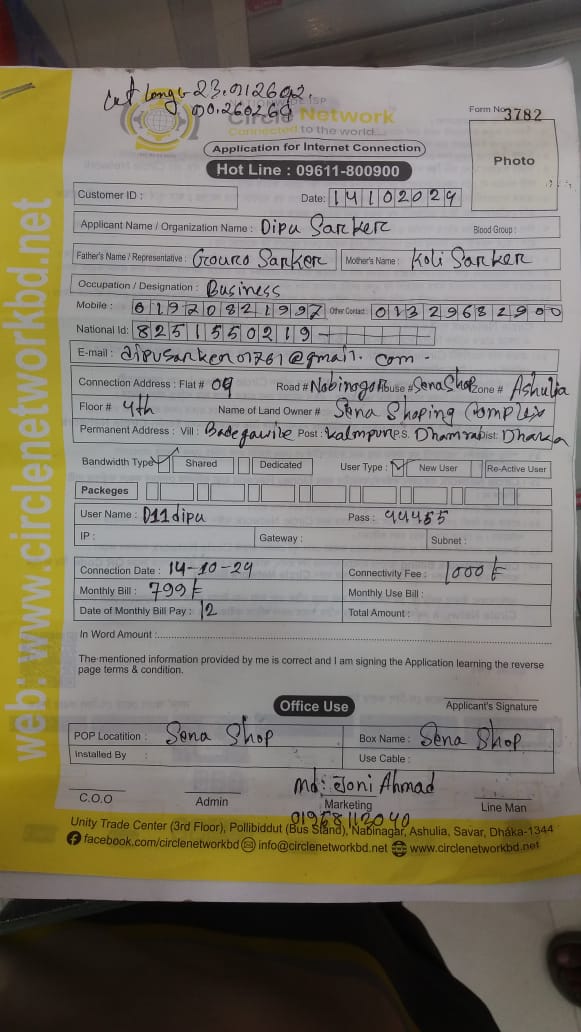 Lat Long- 23.912692.
90.260268
NATIONWIDE ISP
Circle Network
Connected to the world...
Form No 3782
Application for Internet Connection
Photo
Hot Line : 09611-800900
Customer ID :
Date: 14102024
Applicant Name / Organization Name : Dipu Sarker
Blood Group :
Father's Name / Representative : Gouro Sarker Mother's Name : Koli Sarker
Occupation / Designation : Business
Mobile : 01920821997 Other Contact : 01329682900
National Id: 8251550219
E-mail : dipusarker01761@gmail.com
Connection Address : Flat # 09 Road # Nobinogor House # Sena Shop Zone # Ashulia
Floor # 4th Name of Land Owner # Sena Shoping Complex
Permanent Address : Vill : Post : Kalmpur P.S. Dhamrai Dist: Dhaka
Bandwidth Type Shared Dedicated User Type : New User Re-Active User
Packeges
User Name : D11dipu Pass : 44455
IP : Gateway : Subnet :
Connection Date : 14-10-24 Connectivity Fee : 1000 t
Monthly Bill : 799 t Monthly Use Bill :
Date of Monthly Bill Pay : 12 Total Amount :
In Word Amount :
The mentioned information provided by me is correct and I am signing the Application learning the reverse
page terms & condition.
Office Use
Applicant's Signature
POP Locatition : Sena Shop Box Name : Sena Shop
Installed By : Use Cable :
Md: Joni Ahmad
C.O.O Admin Marketing Line Man
01968112040
Unity Trade Center (3rd Floor), Pollibiddut (Bus Stand), Nabinagar, Ashulia, Savar, Dhaka-1344
facebook.com/circlenetworkbd info@circlenetworkbd.net www.circlenetworkbd.net
web: www.circlenetworkbd.net